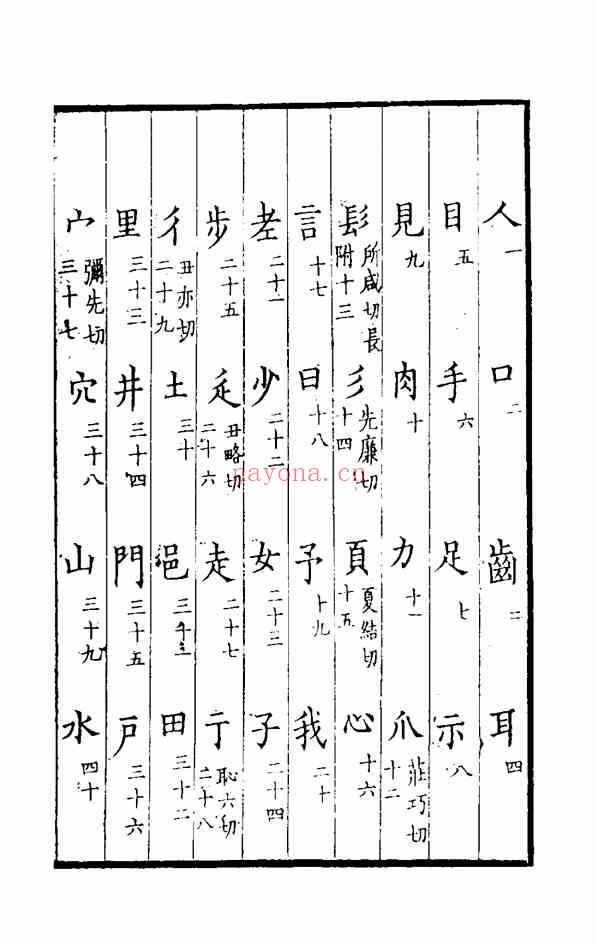 人一 口二 齒三 耳四
目五 手六 足七 示八
見九 肉十 力十一 爪莊巧切十二
髟所咸切長附十三 彡先廉切十四 頁夏結切十五 心十六
言十七 曰十八 予十九 我二十
老二十一 少二十二 女二十三 子二十四
步二十五 辵丑略切二十六 走二十七 亍恥六切二十八
彳丑亦切二十九 土三十 邑三十一 田三十二
里三十三 井三十四 門三十五 戶三十六
宀彌先切三十七 穴三十八 山三十九 水四十
nayona.cn